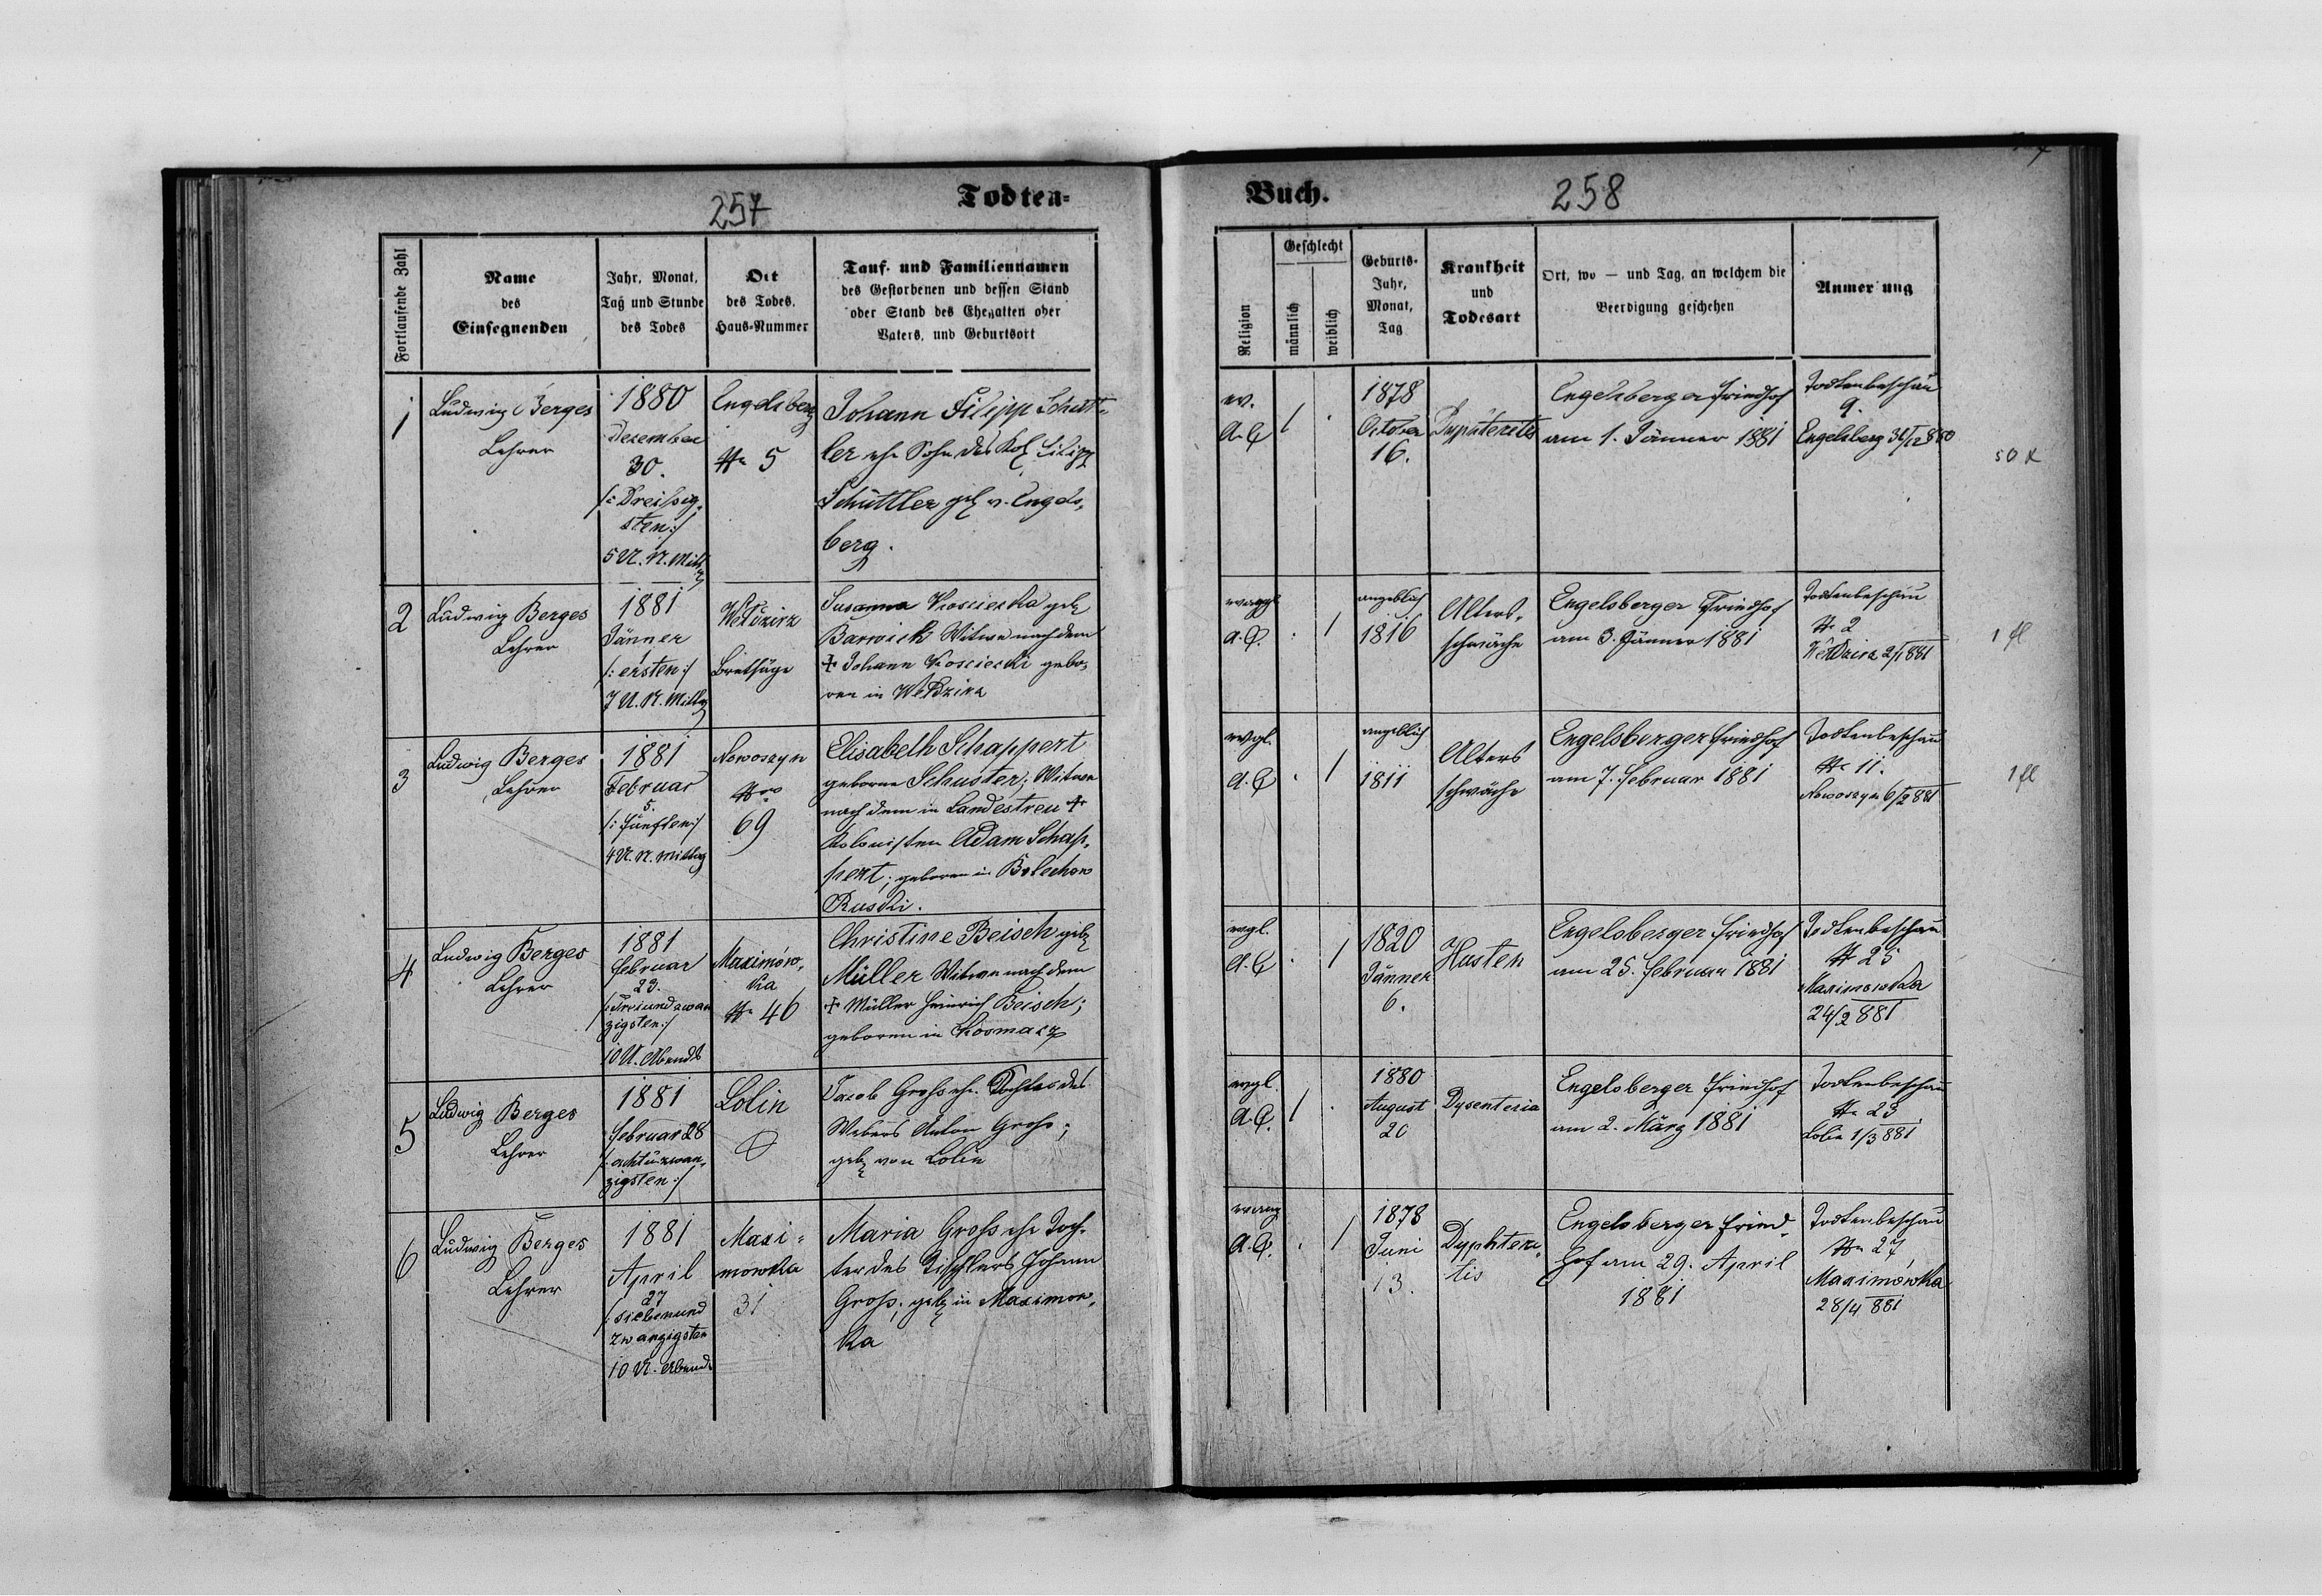 257
Todten-
Fortlaufende Zahl
Name
des
Einsegnenden
Jahr, Monat,
Tag und Stunde
des Todes
Ort
des Todes,
Haus-Nummer
Tauf- und Familiennamen
des Gestorbenen und dessen Stand
oder Stand des Ehegatten oder
Vaters, und Geburtsort
1
Ludwig Berges
Lehrer
1880
Dezember
30.
/: Dreißig-
sten :/
5 U. N. Mittg
Engelsberg
№ 5
Johann Filipp Schütt-
ler ehe Sohn des Kol Filipp
Schüttler geb v. Engels-
berg.
2
Ludwig Berges
Lehrer
1881
Jänner
1
/: ersten :/
7 U. N. Mittag
Wełdzirz
Bretsäge
Susanna Koscielka geb
Barwich Witwe nach dem
+ Johann Koscielki gebo-
ren in Wełdzirz
3
Ludwig Berges
Lehrer
1881
Februar
5.
/: fünften :/
4 U. N. Mittag
Nowoszyn
Nro
69
Elisabeth Schappert
geborene Schuster; Witwe
nach dem in Landestreu +
Kolonisten Adam Schap-
pert; geboren in Bolechow
Ruski.
4
Ludwig Berges
Lehrer
1881
Februar
23.
/: dreiundzwan
zigsten :/
10 U. Abends
Maximów-
ka
№ 46
Christine Beisch geb
Müller Witwe nach dem
+ Müller Heinrich Beisch;
geboren in Kosmacz
5
Ludwig Berges
Lehrer
1881
Februar 28
/: achtuzwan-
zigsten :/
Lolin
Jacob Groß ehe. Tochter des
Webers Anton Groß;
geb von Lolin
6
Ludwig Berges
Lehrer
1881
April
27
/: siebenund
zwanzigsten
10 U. Abends
Maxi-
mowka
31
Maria Groß ehe Toch-
ter des Tischlers Johann
Groß; geb in Maximow-
ka
Buch.
258
Religion
Geschlecht
männlich
weiblich
Geburts-
Jahr,
Monat,
Tag
Krankheit
und
Todesart
Ort, wo — und Tag, an welchem die
Beerdigung geschehen
Anmer ung
ev.
A.C
/ .
1878
October
16.
Engelsberger Friedhof
am 1. Jänner 1881
Todtenbeschau
9.
Engelsberg 31/12 880
50 x
evaggl
A.C.
. /
angeblich
1816
Alters-
schwäche
Engelsberger Friedhof
am 3. Jänner 1881
Todtenbeschau
№ 2
Wełdzirz 2/1 881
1 fl
evgl.
A.C
. /
angeblich
1811
Alters
schwäche
Engelsberger Friedhof
am 7. Februar 1881
Todtenbeschau
№ 11.
Nowoszyn 6/2 881
1 fl
evgl.
A.C
. /
1820
Jänner
6.
Husten
Engelsberger Friedhof
am 25. Februar 1881
Todtenbeschau
№ 25
Maximowka
24/2 881
evgl.
A.C.
/ .
1880
August
20
Dysenteria
Engelsberger Friedhof
am 2. März 1881
Todtenbeschau
№ 23
Lolin 1/3 881
evang
A.C.
. /
1878
Juni
13.
Dyphteri-
tis
Engelsberger Fried-
hof am 29. April
1881
Todtenbeschau
№ 27
Maximówka
28/4 881